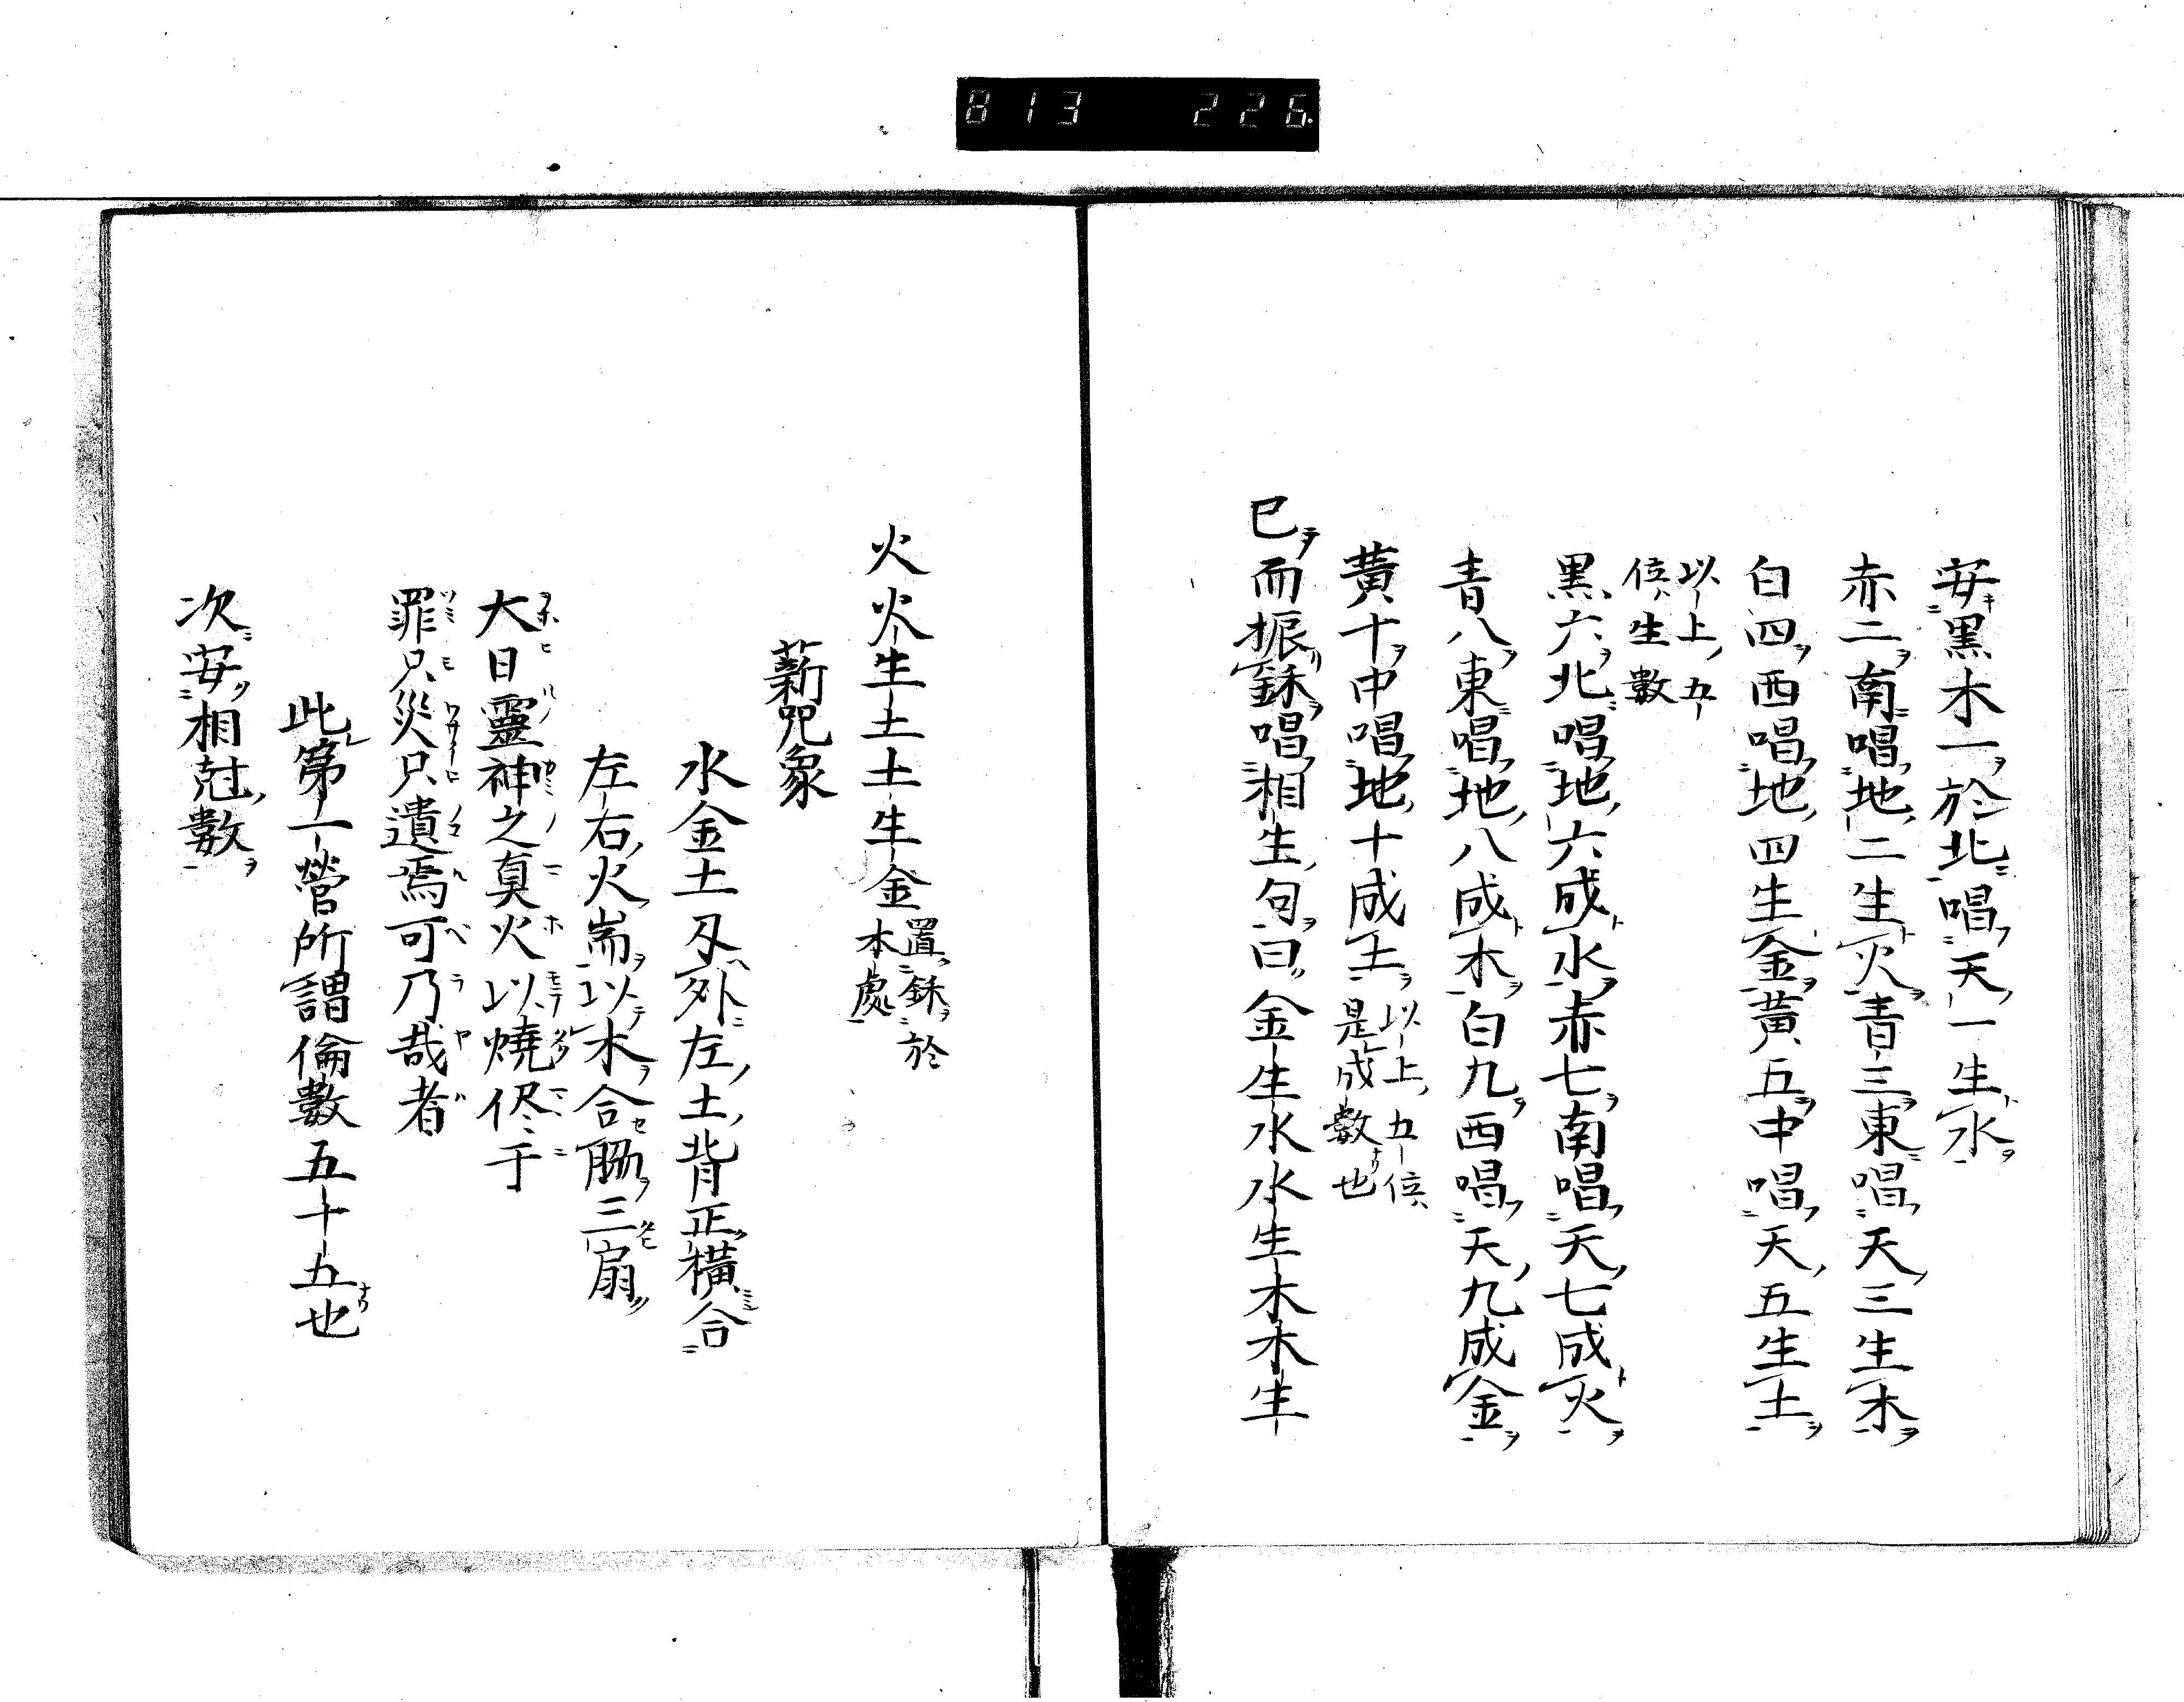 813 226
安黒木一於北唱天一生水
赤二南唱地二生火青三東唱天三生木
白四西唱地四生金黄五中唱天五生土
以上五
位生數
黒六北唱地六成水赤七南唱天七成火
青八東唱地八成木白九西唱天九成金
黄十中唱地十成土以上五位
是成數也
已而振鉌唱相生句曰金生水水生木木生
火火生土土生金置鉌於
本處
薪咒象
水金土 外左土背正横合
左右火耑以木合 三扇
大日靈神之真火以燒侭于
罪只災只遺焉可乃哉者
此第一營所謂倫數五十五也
次安相尅數